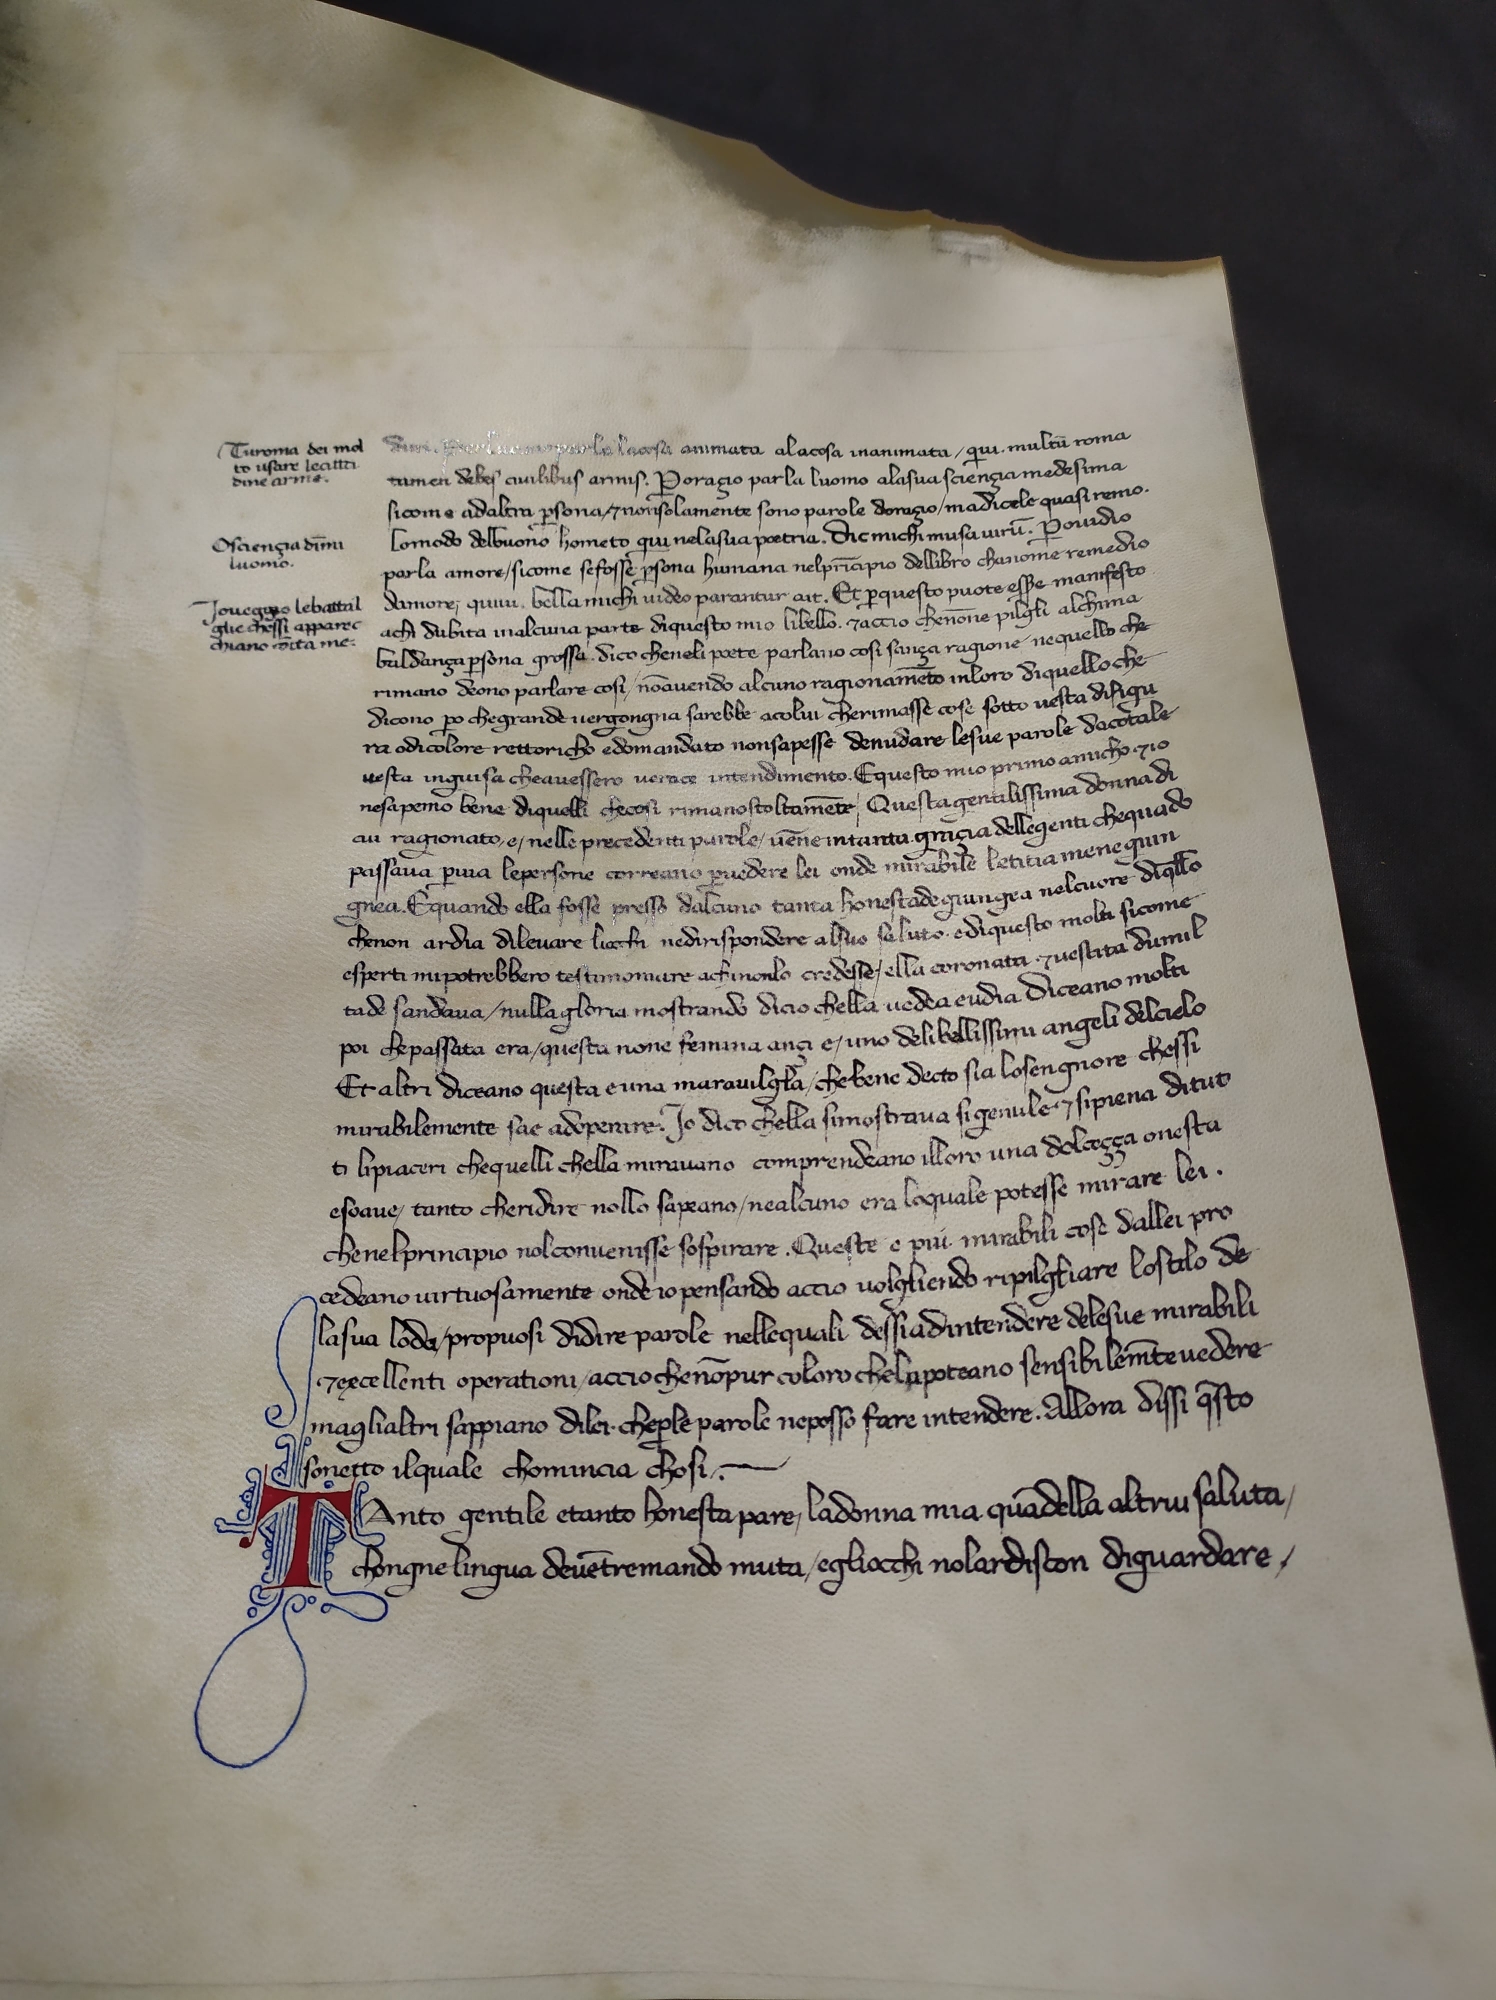 Turoma dei mol
to usare lecitta
dine arme.
Osciença dīmi
luomo.
Joueggio lebattal
glie chessi apparec
chiano cōtā me.
parla lacosa animata alacosa inanimata / qui. multū roma
tamen debes ciuilibus armis. Poragio parla luomo alasua sciença medesima
sicome adaltra psona / ⁊ nonsolamente sono parole doragio / madicele quasi remo.
lomodo delbuono homero qui nelasua poetria. Dic michi musa uirū. Pouidio
parla amore / sicome sefosse psona humana nelprīcipio dellibro chanome remedio
damore; quiui. bella michi uideo parantur ait. Et pquesto puote esse manifesto
achi dubita inalcuna parte diquesto mio libello. ⁊accio chenōne pilgli alchuna
baldança psona grossa. dico cheneli poete parlano cosi sança ragione nequello che
rimano deono parlare cosi / nōauendo alcuno ragionamēto inloro diquello che
dicono po chegrande uergongna sarebbe acolui cherimasse cose sotto uesta disigu
ra odicolore rettoricho edomandato nonsapesse denudare lesue parole dacotale
uesta inguisa cheauessero uerace intendimento. Equesto mio primo amicho ⁊io
nesapemo bene diquelli checosi rimano stoltamēte / Questa gentilissima donna di
cui ragionato / e / nelle precedenti parole / uēne intanta graçia dellegenti chequādo
passaua puia lepersone correano puedere lei onde mirabile letitia menegiun
gnea. Equando ella fosse presso dalcuno tanta honestade giungea nelcuore diqllo
chenon ardia dileuare liocchi nedirispondere alsuo saluto. ediquesto molti sicome
esperti mipotrebbero testimoniare achinonlo credesse / ella coronata ⁊uestita dumil
tade sandaua / nulla gloria mostrando dicio chella uedea eudia Diceano molti
poi chepassata era / questa none femina ançi e / uno delibellissimi angeli delcielo
Et altri diceano questa e una marauilglia / chebene decto sia losengnore chessi
mirabilemente sae adoperare. Jo dico chella simostraua si gentile ⁊ sipiena ditut
ti lipiaceri chequelli chella mirauano comprendeano illoro una dolceçça onesta
esoaue / tanto cheridire nollo sapeano / nealcuno era loquale potesse mirare lei.
chenelprincipio nolconuenisse sospirare. Queste e piu mirabili cose dallei pro
cedeano uirtuosamente onde io pensando accio uolgliendo ripilgliare lostilo de
lasua loda / propuosi didire parole nellequali dessi adintendere delesue mirabili
⁊excellenti operationi / accio chenōpur coloro chelapoteano sensibilemēte uedere
maglialtri sappiano dilei. cheple parole neposso fare intendere. Allora dissi qsto
sonetto ilquale chomincia chosi.
TAnto gentile etanto honesta pare / ladonna mia quādella altrui saluta /
chongne lingua deuētremando muta / egliocchi nolardiscon diguardare /